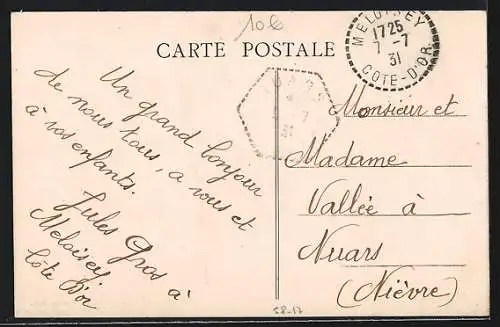 10 €
CARTE POSTALE
MELOISEY
1725
7 -7
31
COTE-D'OR
Un grand bonjour
de nous tous, a vous et
à vos enfants.
Jules Gros à
Meloisey
Côte d'or
Monsieur et
Madame
Vallée à
Nuars
(Nièvre)
58-17